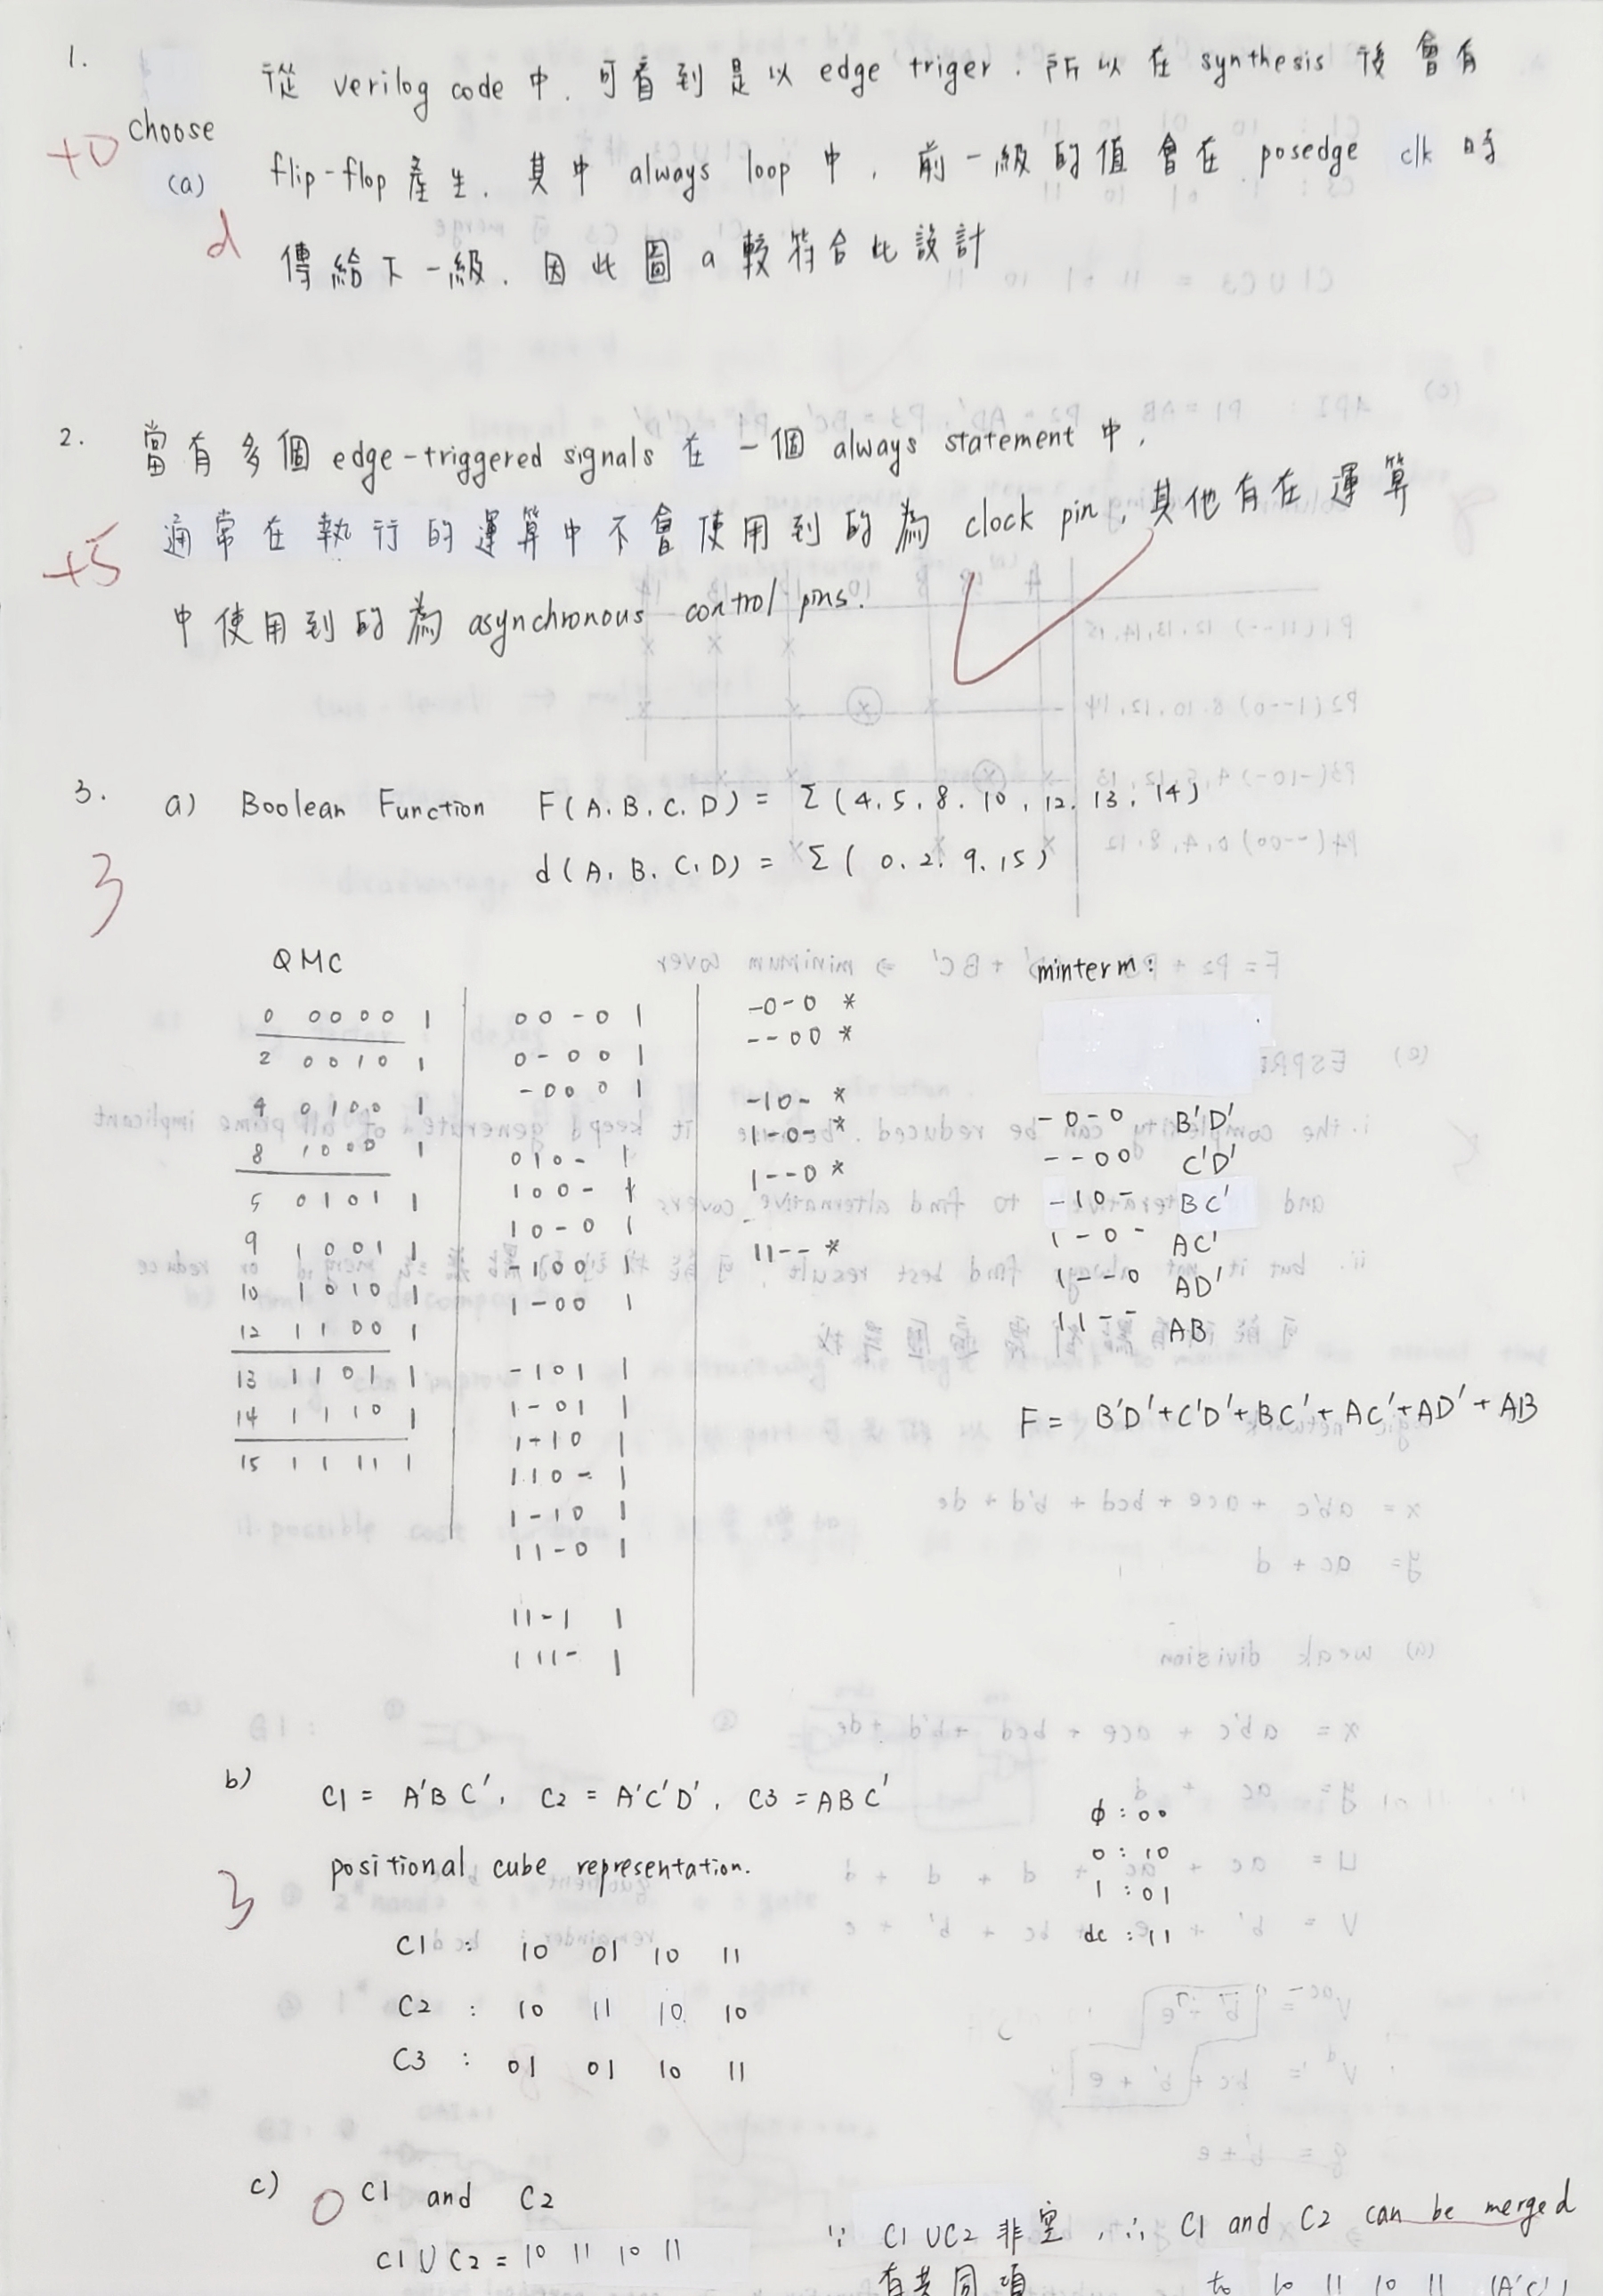 1.
從 verilog code 中. 可看到是以 edge triger. 所以在 synthesis 後會有
+0 choose (a) flip-flop 產生. 其中 always loop 中. 前一級的值會在 posedge clk 時
d 傳給下一級. 因此圖 a 較符合此設計
2. 當有多個 edge-triggered signals 在一個 always statement 中,
通常在執行的運算中不會使用到的為 clock pin, 其他有在運算
+5
中使用到的為 asynchronous control pins.
3. a) Boolean Function F(A.B.C.D) = Σ(4.5.8.10.12.13.14)
3 d(A.B.C.D) = Σ(0.2.9.15)
QMC
0 0000 1
2 0010 1
4 0100 1
8 1000 1
5 0101 1
9 1001 1
10 1010 1
12 1100 1
13 1101 1
14 1110 1
15 1111 1
00-0 1
0-00 1
-000 1
010- 1
100- 1
10-0 1
-100 1
1-00 1
-101 1
1-01 1
1-10 1
110- 1
1-10 1
11-0 1
11-1 1
111- 1
-0-0 *
--00 *
-10- *
1-0- *
1--0 *
11-- *
minterm:
-0-0 B'D'
--00 C'D'
-10- BC'
1-0- AC'
1--0 AD'
11-- AB
F = B'D'+C'D'+BC'+AC'+AD'+AB
b) C1 = A'BC', C2 = A'C'D', C3 = ABC'
3 positional cube representation.
C1 : 10 01 10 11
C2 : 10 11 10 10
C3 : 01 01 10 11
φ : 00
0 : 10
1 : 01
dc : 11
c) 0 C1 and C2
C1 ∪ C2 = 10 11 10 11
∵ C1 ∪ C2 非空, ∴ C1 and C2 can be merged
有共同項 to 10 11 10 11 (A'C')